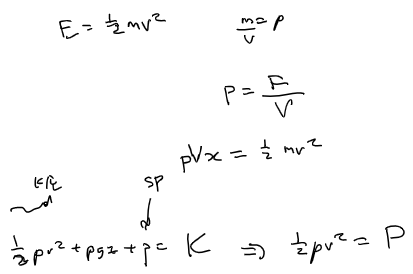 E = ½ mv²
m/V = ρ
P = F/V
ρVx = ½ mv²
KPE
SP
½ ρv² + ρgz + p = K ⇒ ½ρv² = P